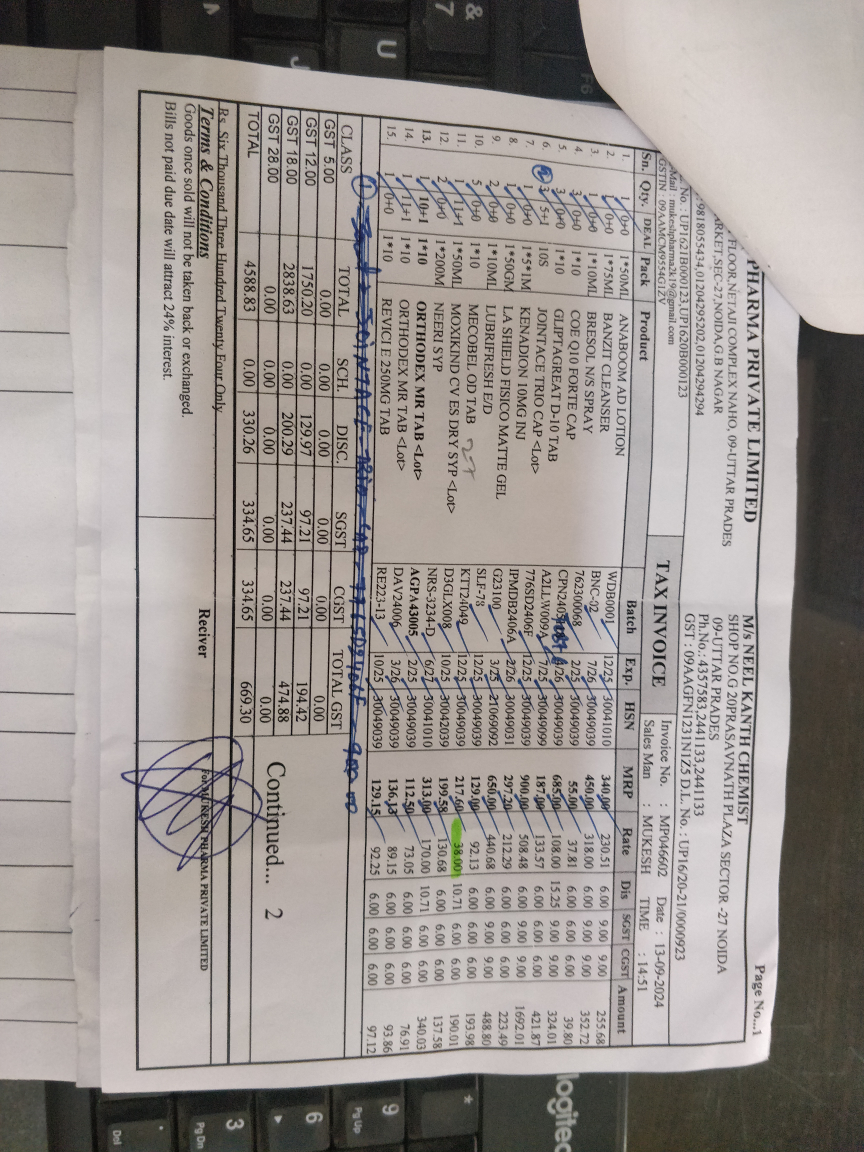 PHARMA PRIVATE LIMITED
FLOOR,NETAJI COMPLEX NAHO, 09-UTTAR PRADES
ARKET,SEC-27,NOIDA,G.B NAGAR
9818055434,01204295202,01204294294
No. : UP1621B000123,UP1620B000123
Mail : mukeshpharma2k19@gmail.com
GSTIN : 09AAMCM9554G1ZV
Page No...1
M/s NEEL KANTH CHEMIST
SHOP NO.G 20PRASAVNATH PLAZA SECTOR -27 NOIDA
09-UTTAR PRADES
Ph.No.: 4357583,2441133,2441133
GST : 09AAGFN1231N1Z5 D.L. No. : UP16/20-21/0000923
TAX INVOICE
Invoice No. : MP046602 Date : 13-09-2024
Sales Man : MUKESH TIME : 14:51
Sn. Qty. DEAL Pack Product Batch Exp. HSN MRP Rate Dis SGST CGST Amount
1. 1 0+0 1*50ML ANABOOM AD LOTION WDB0001 12/25 30041010 340.00 230.51 6.00 9.00 9.00 255.68
2. 1 0+0 1*75ML BANZIT CLEANSER BNC-02 7/26 30049039 450.00 318.00 6.00 9.00 9.00 352.72
3. 1 0+0 1*10ML BRESOL N/S SPRAY 762300068 2/25 30049039 55.00 37.81 6.00 6.00 6.00 39.80
4. 3 0+0 1*10 COE Q10 FORTE CAP 4/26 30049039 685.00 108.00 15.25 9.00 9.00 324.01
5. 3 0+0 1*10 GLIPTAGREAT D-10 TAB A2LLW009A 7/25 30049099 187.00 133.57 6.00 6.00 6.00 421.87
6. 3 5+1 10S JOINTACE TRIO CAP <Lot> 776SD2406F 12/25 30049039 900.00 508.48 6.00 9.00 9.00 1692.01
7. 1 0+0 1*5*1M KENADION 10MG INJ IPMDB2406A 2/26 30049031 297.20 212.29 6.00 6.00 6.00 223.49
8. 1 0+0 1*50GM LA SHIELD FISICO MATTE GEL G23100 3/25 21069092 650.00 440.68 6.00 9.00 9.00 488.80
9. 2 0+0 1*10ML LUBRIFRESH E/D SLF-78 12/25 30049039 129.00 92.13 6.00 6.00 6.00 193.98
10. 5 0+0 1*10 MECOBEL OD TAB KTT24049 12/25 30049039 217.60 38.00 10.71 6.00 6.00 190.01
11. 1 11+1 1*50ML MOXIKIND CV ES DRY SYP <Lot> D3GLX008 10/25 30042039 199.58 130.68 6.00 6.00 6.00 137.58
12. 2 0+0 1*200M NEERI SYP NRS-3234-D 6/27 30041010 313.00 170.00 10.71 6.00 6.00 340.03
13. 1 10+1 1*10 ORTHODEX MR TAB <Lot> AGPA43005 2/25 30049039 112.50 73.05 6.00 6.00 6.00 76.91
14. 1 11+1 1*10 ORTHODEX MR TAB <Lot> DAV24006 3/26 30049039 136.13 89.15 6.00 6.00 6.00 93.86
15. 1 0+0 1*10 REVICI E 250MG TAB RE223-13 10/25 30049039 129.15 92.25 6.00 6.00 6.00 97.12
CLASS TOTAL SCH. DISC. SGST CGST TOTAL GST
GST 5.00 0.00 0.00 0.00 0.00 0.00 0.00
GST 12.00 1750.20 0.00 129.97 97.21 97.21 194.42
GST 18.00 2838.63 0.00 200.29 237.44 237.44 474.88
GST 28.00 0.00 0.00 0.00 0.00 0.00 0.00
TOTAL 4588.83 0.00 330.26 334.65 334.65 669.30
Continued... 2
Rs. Six Thousand Three Hundred Twenty Four Only
Terms & Conditions
Goods once sold will not be taken back or exchanged.
Bills not paid due date will attract 24% interest.
Reciver
For MUKESH PHARMA PRIVATE LIMITED
logitec